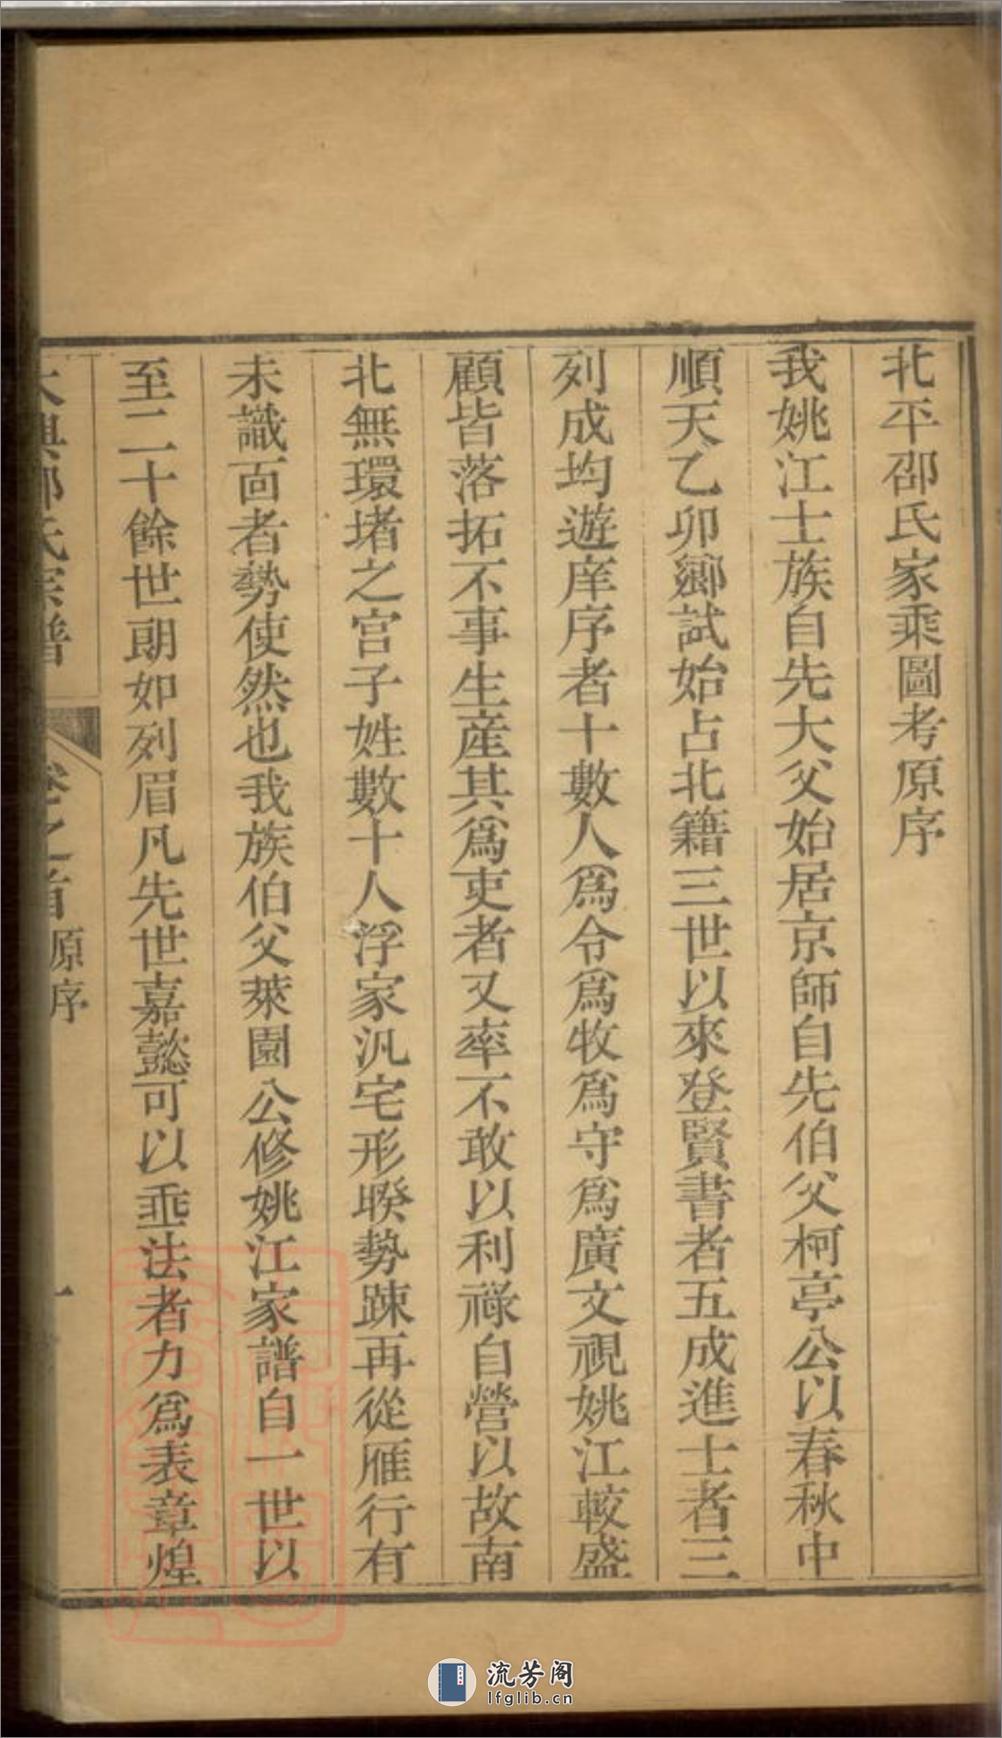 北平邵氏家乘圖考原序
我姚江士族自先大父始居京師自先伯父柯亭公以春秋中
順天乙卯鄉試始占北籍三世以來登賢書者五成進士者三
列成均遊庠序者十數人爲令爲牧爲守爲廣文視姚江較盛
顧皆落拓不事生産其爲吏者又率不敢以利祿自營以故南
北無環堵之宫子姓數十人浮家汎宅形暌勢踈再從雁行有
未識面者勢使然也我族伯父萊園公修姚江家譜自一世以
至二十餘世朗如列眉凡先世嘉懿可以垂法者力爲表章煌
大興邵氏宗譜 卷之首 原序 一
流芳阁
lfglib.cn